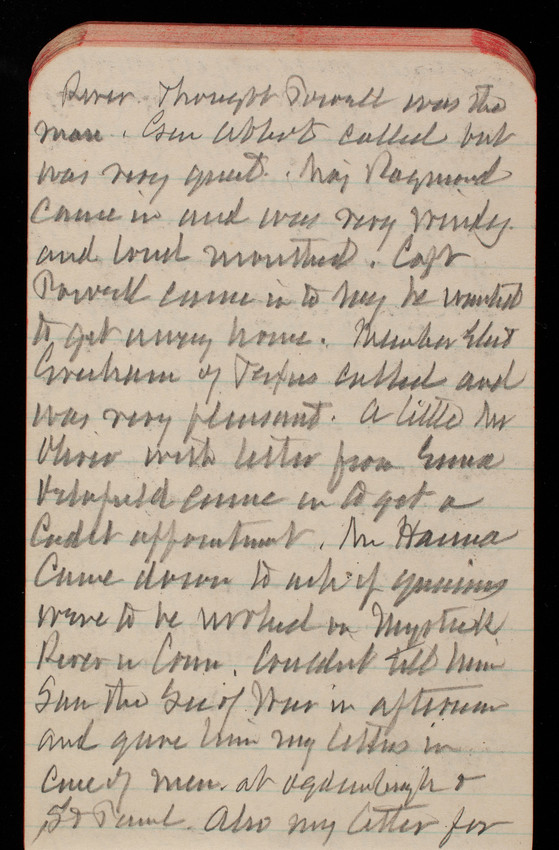 River. Thought Powell was the
man. Gen Abbot called but
was very quiet. Maj Raymond
Came in and was very windy
and loud mouthed. Capt
Powell came in to say he wanted
to get away home. Member Elect
Gresham of Texas called and
was very pleasant. A little Mr
Oliver with letter from Emma
Delafield came in to get a
Cadet appointment. Mr Hanna
Came down to ask if
were to be worked on Mystick
River in Conn. Couldnt tell him
Saw the Sec of War in afternoon
and gave him my letters in
Case of men at Ogdensburgh &
St Paul. Also my letter for